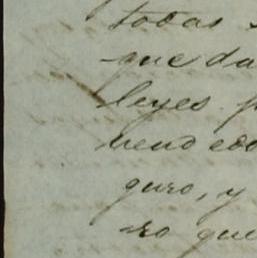 todas
que da
leyes. p
vendedo
guro, y
ro que